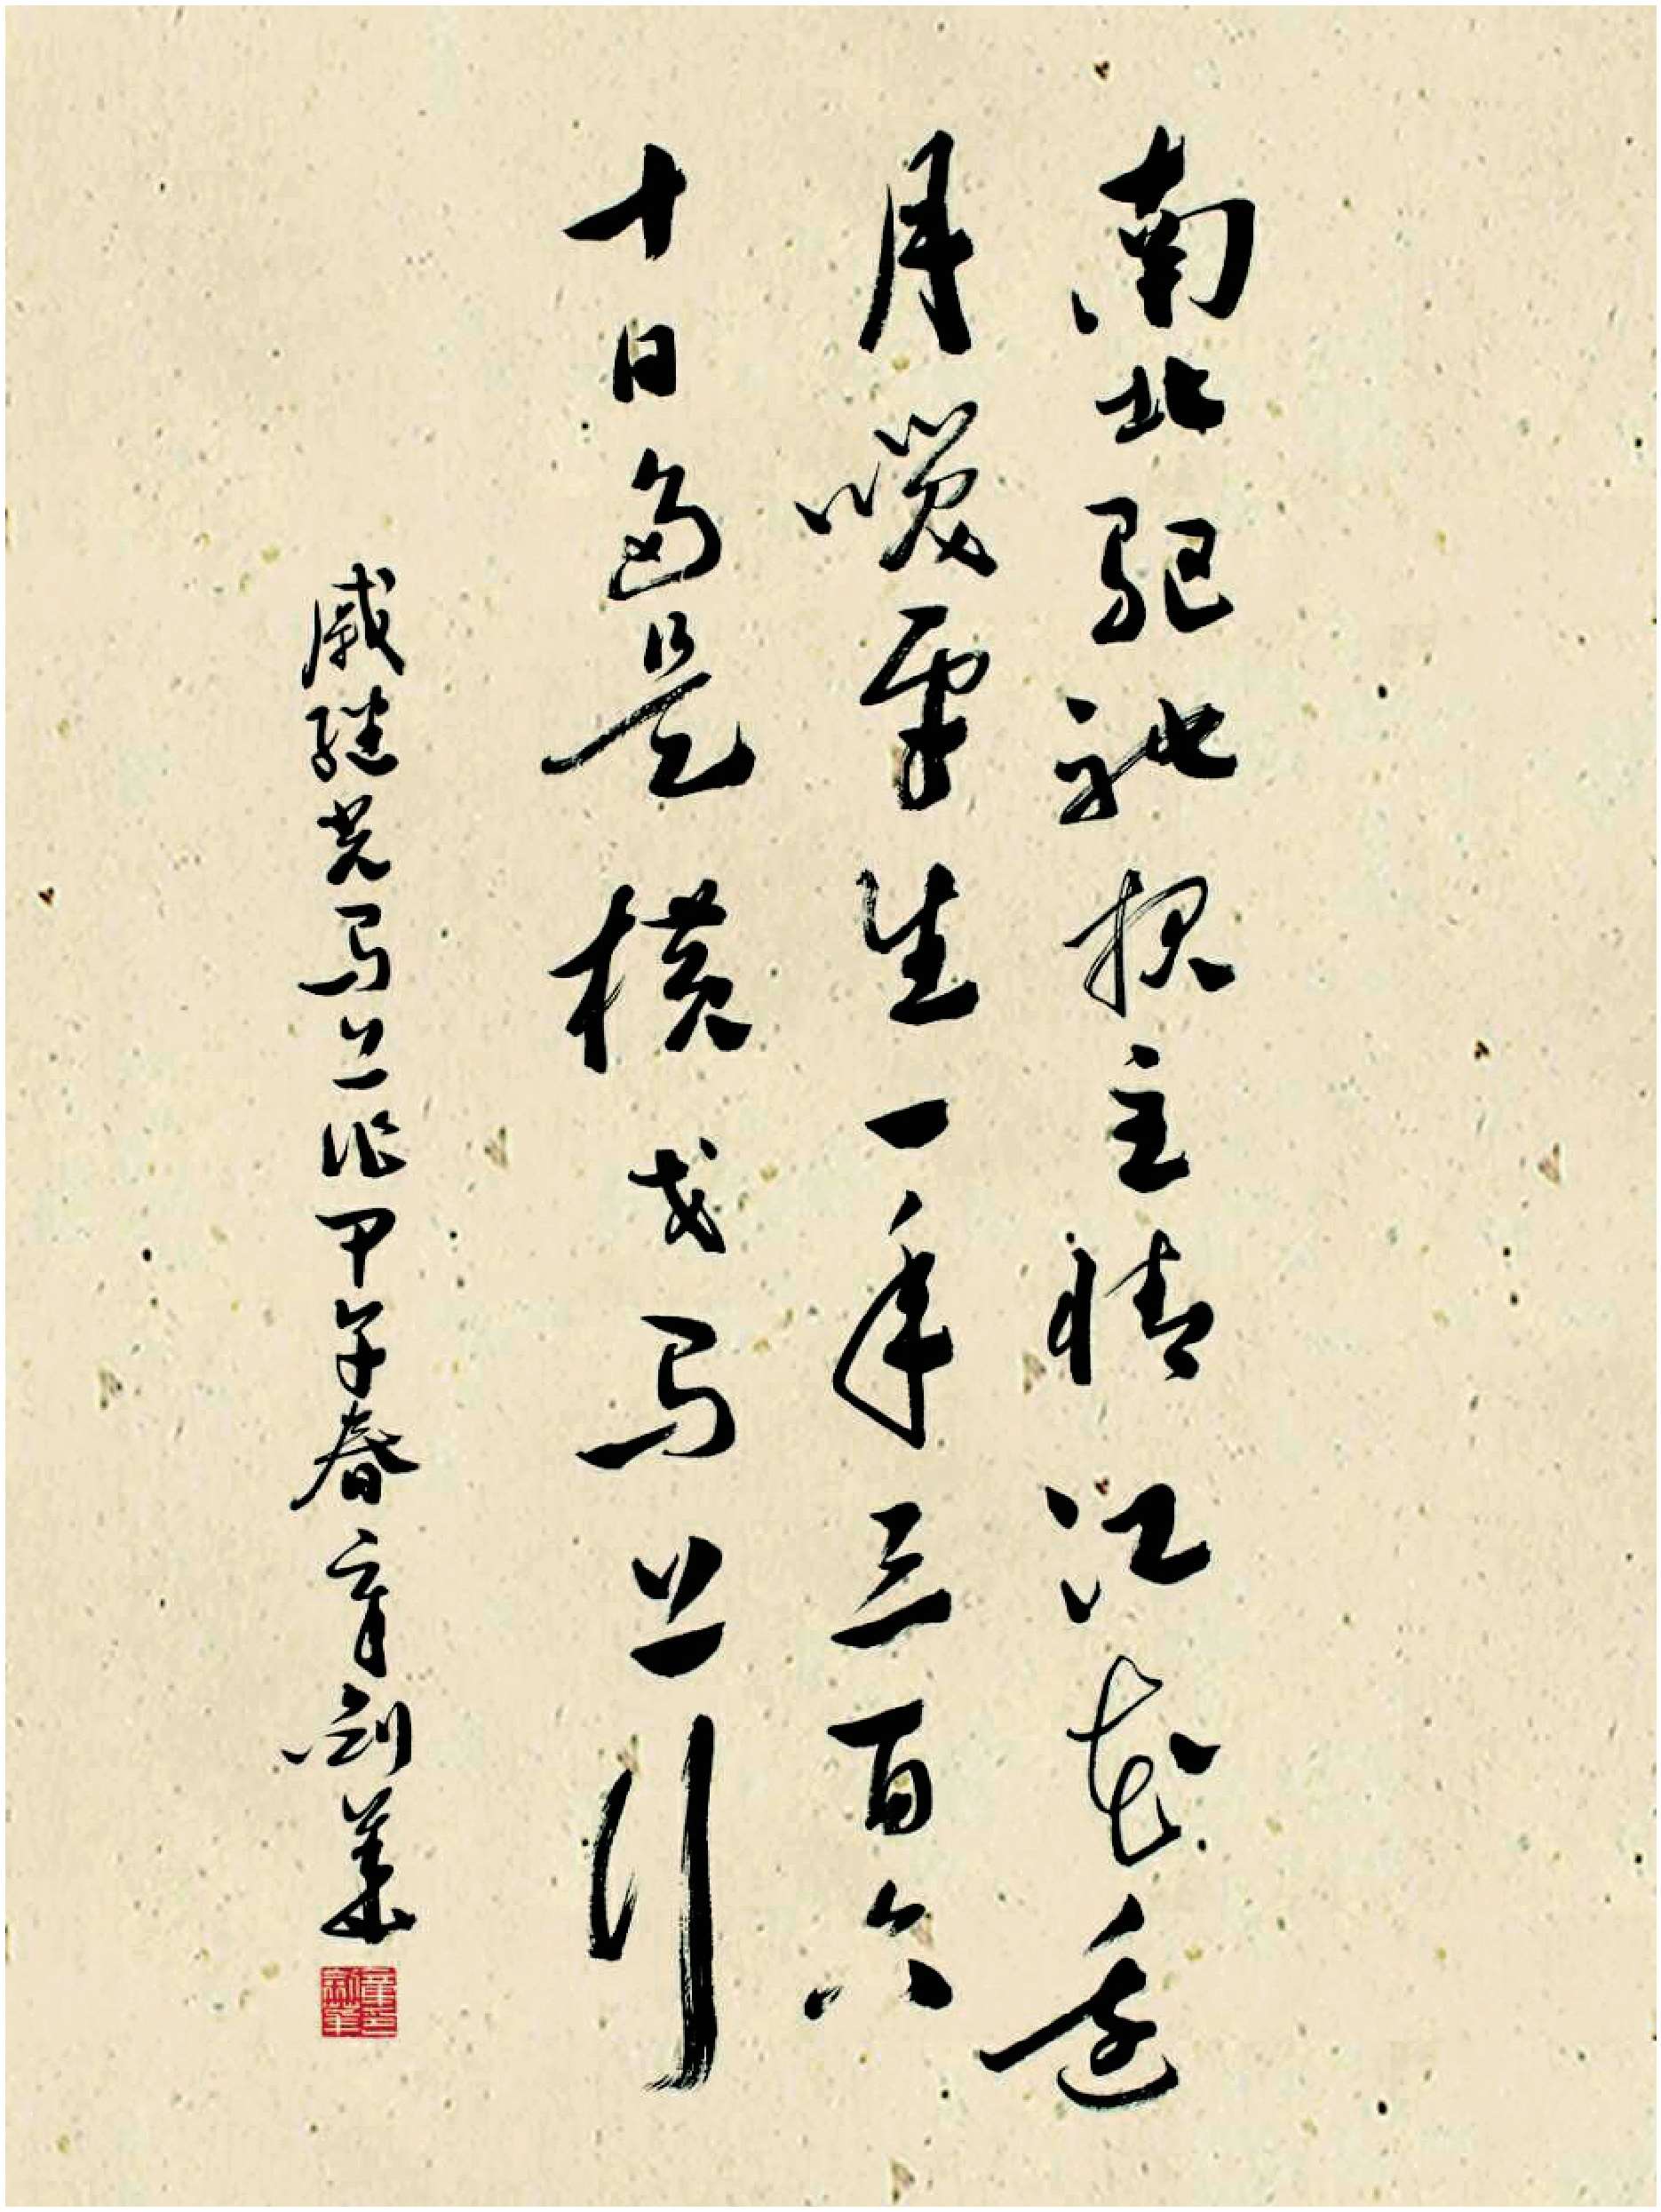 南北驱驰报主情江花边
月笑平生一年三百六
十日多是横戈马上行
戚继光马上作甲午春章剑华
章剑华印